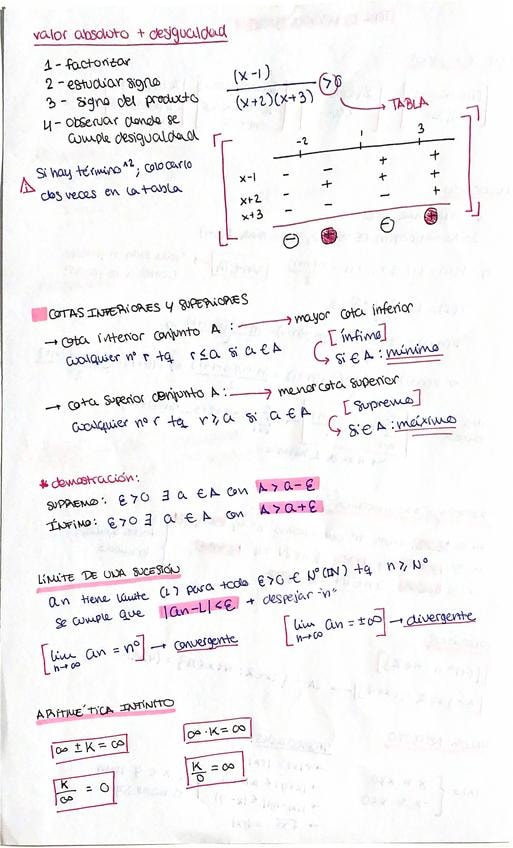 valor absoluto + desigualdad
1- factorizar
2- estudiar signo
3- signo del producto
4- observar donde se
cumple desigualdad
(x-1)
(x+2)(x+3) >0
→ TABLA
⚠ Si hay término ^2, colocarlo
dos veces en la tabla
-2 1 3
x-1 - - + +
x+2 - + + +
x+3 - - - +
⊖ ⊕ ⊖ ⊕
COTAS INFERIORES Y SUPERIORES
→ cota inferior conjunto A: → mayor cota inferior
cualquier nº r tq r ≤ a si a ∈ A
[ínfimo]
↳ si ∈ A: mínimo
→ cota superior conjunto A: → menor cota superior
cualquier nº r tq r ≥ a si a ∈ A
[supremo]
↳ si ∈ A: máximo
* demostración:
SUPREMO: ε>0 ∃ a ∈ A con A > a-ε
ÍNFIMO: ε>0 ∃ a ∈ A con A > a+ε
LÍMITE DE UNA SUCESIÓN
an tiene límite (L) para todo ε>0 ∈ Nº(IN) tq n ≥ Nº
se cumple que |an-L|<ε + despejar "n"
[lim n→∞ an = nº] → convergente
[lim n→∞ an = ±∞] → divergente
ARITMÉTICA INFINITO
∞ ± K = ∞
∞ · K = ∞
K/∞ = 0
K/0 = ∞